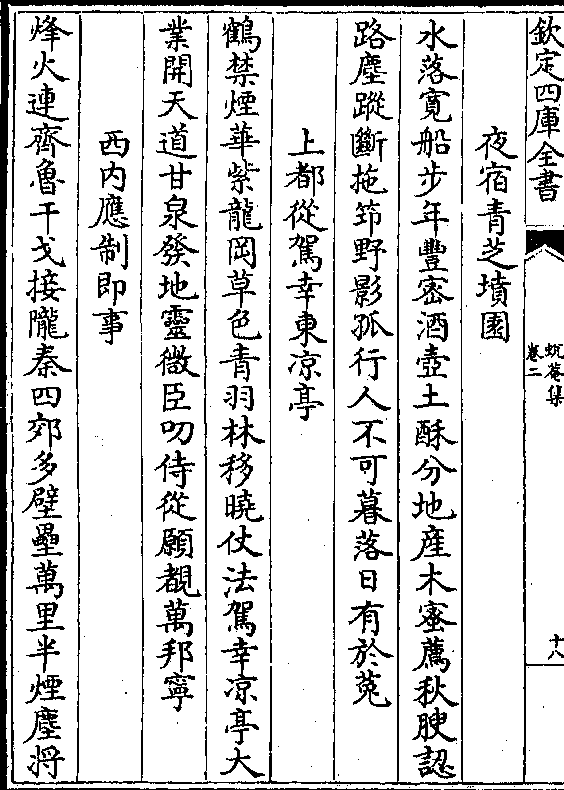 欽定四庫全書
蛻菴集
卷二
十八
夜宿青芝墳園
水落寛船步年豐宻酒壺土酥分地産木蜜薦秋腴認
路塵蹤斷拖笻野影孤行人不可暮落日有於菟
上都從駕幸東凉亭
鶴禁煙華紫龍岡草色青羽林移曉仗法駕幸凉亭大
業開天道甘泉發地靈微臣叨侍從願覩萬邦寧
西内應制即事
烽火連齊魯干戈接隴秦四郊多壁壘萬里半煙塵將